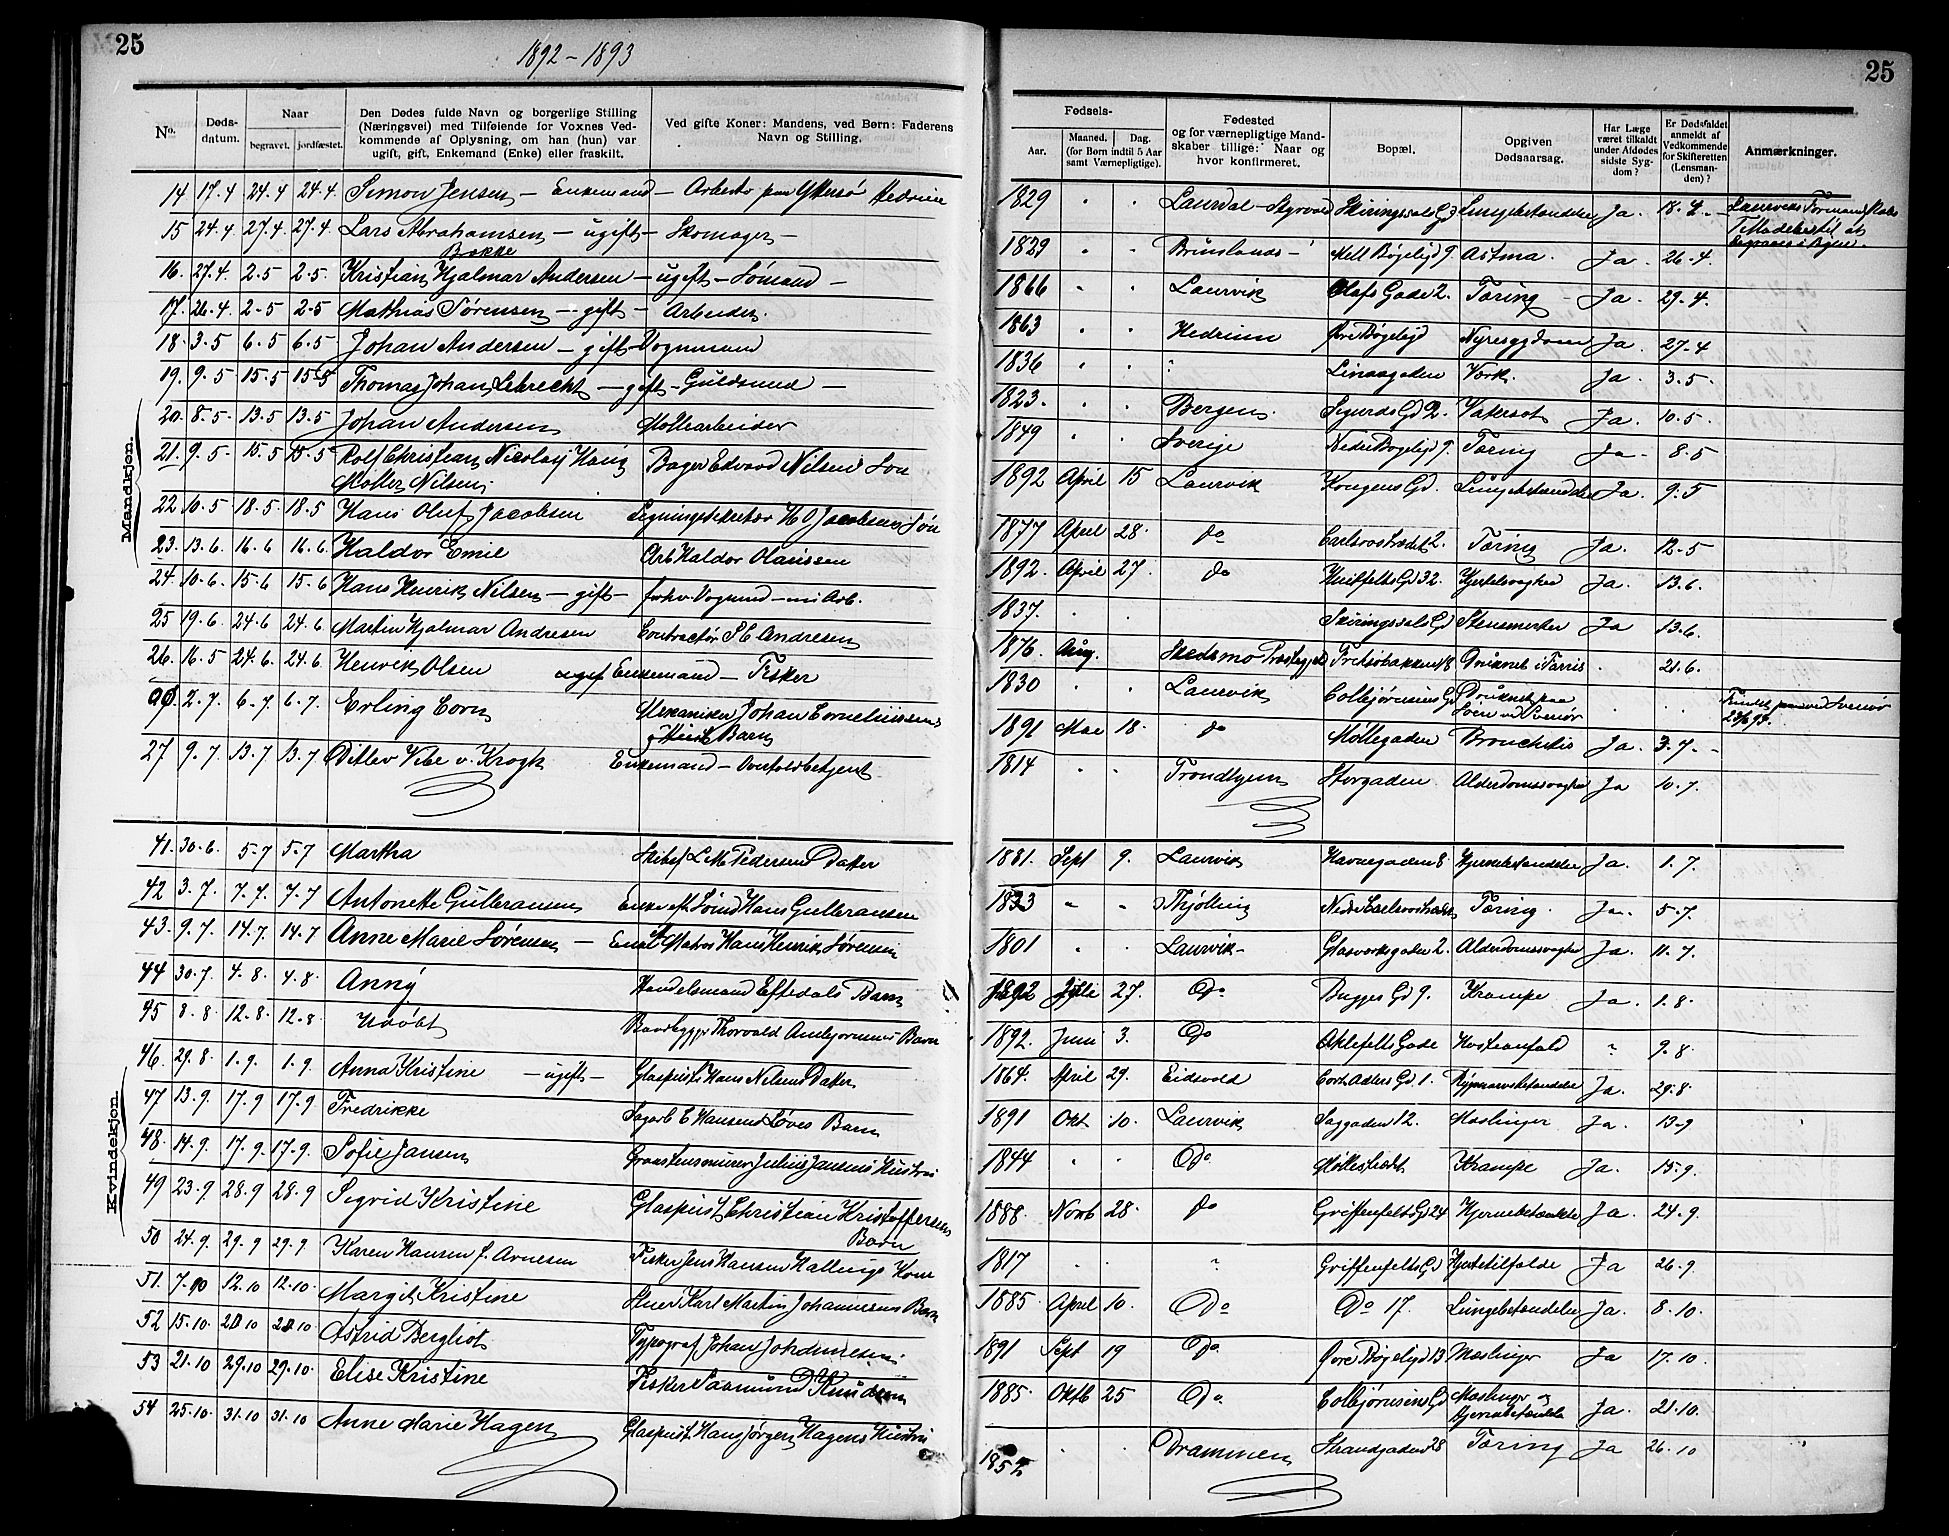 25
1892-1893
No.
Døds-
datum.
Naar
begravet.
jordfæstet.
Den Dødes fulde Navn og borgerlige Stilling
(Næringsvei) med Tilføiende for Voxnes Ved-
kommende af Oplysning, om han (hun) var
ugift, gift, Enkemand (Enke) eller fraskilt.
Ved gifte Koner: Mandens, ved Børn: Faderens
Navn og Stilling.
Mandkjøn.
14 17.4 24.4 24.4 Simon Jensen - Enkemand - Hedrum
15 24.4 27.4 27.4 Lars Abrahamsen - ugift - Skomager -
Bakke
16. 27.4. 2.5 2.5. Kristian Hjalmar Andersen - ugift - Sømand -
17. 26.4 2-5 2-5 Mathias Sørensen - gift - Arbeider.
18. 3.5 6.5 6.5. Johan Andersen - gift - Vognmand
19. 9.5 15.5 15.5 Thomas Johan Lebrecht - gift - Guldsmed -
20. 8.5. 13.5 13.5 Johan Andersen Møllearbeider
21. 9.5 15.5 15.5 Rolf Christian Nicolay Haug Bager Edvard Nilsens Søn
Møller Nilsen
22 10.5 18.5. 18.5 Hans Oluf Jacobsen Ligningssekretær H O Jacobsens Søn
23. 13.6 16.6 16.6. Haldor Emil Arb Haldor Olaussen
24. 10.6. 15.6 15.6 Hans Henrik Nilsen - gift - Arb.
25 19.6 24.6 24.6. Martin Hjalmar Andresen Contractør Andresen
26. 16.5 24.6. 24.6. Henrik Olsen Enkemand - Fisker
2.7. 6.7 6.7. Erling Corn Mekaniker Johan Corneliussens
Barn
27 9.7 13.7 13.7 Ditlev Vibe v. Krogh Enkemand - Overtoldbetjent
Kvindekjøn.
41. 30.6. 5.7 5.7 Martha Skibsf L M Pedersens Datter
42 3.7. 7.7. 7.7 Antonette Gulbransen Enke eft. Sømd Hans Gulbransen
43. 9.7. 14.7. 14.7 Anne Marie Sørensen - Matros Hans Henrik Sørensen
44 30.7. 4.8. 4.8. Anny Handelsmand Eftedals Barn
45 8.8 12.8. 12.8 Udøbt Baadbygger Thorvald Barn
46. 29.8 1.9. 1.9. Anna Kristine - ugift - Glaspust Hans Nilsens Datter
47 13.9. 17.9 17.9 Fredrikke Sagarb E Hansens Løves Barn
48. 14.9. 17.9. 17.9. Sofie Jansen Julius Jansens Hustru
49 23.9 28.9 28.9 Sigrid Kristine Glaspust. Christian Kristoffersens
Barn
50 24.9. 29.9 29.9 Karen Hansen f. Arnesen Fisker Jens Hansen Hallings Kone
51. 7.10 12.10 12.10. Margit Kristine Karl Martin Johannesens Barn
52 15.10. 21.10 21.10. Astrid Bergliot Typograf Johan
53 21.10 29.10 29.10. Elise Kristine Fisker Knudsen
54 25.10. 31.10 31.10 Anne Marie Hagen Glaspust. Hans Jørgen Hagens Hustru
25
Fødsels-
Aar.
Maaned.
Dag.
(for Børn indtil 5 Aar
samt Værnepligtige).
Fødested
og for værnepligtige Mand-
skaber tillige: Naar og
hvor konfirmeret.
Bopæl.
Opgiven
Dødsaarsag.
Har Læge
været tilkaldt
under Afdødes
sidste Syg-
dom?
Er Dødsfaldet
anmeldt af
Vedkommende
for Skifteretten
(Lensman-
den)?
Anmærkninger.
1829 Laurdal Skiringssals Gd Lungebetændelse Ja. 18.4.
1829 Brunlands Mell Bøgeligd 9. Astma. Ja 26.4.
1866 Laurvik Olafs Gade 2. Tæring - Ja. 29.4.
1863 Hedrum Øvre Bøgeligd Nyresygdom Ja. 27.4
1836 Linaagaden Værk. Ja. 3.5.
1823. Bergen. Sigurds Gd 2. Vatersot Ja. 10.5.
1849 Sverige Nedre Bøgeligd 9. Tæring Ja. 8.5
1892 April 15 Laurvik Kongens Gd. Lungebetændelse Ja. 9.5
1877 April 28. do Tæring Ja. 12.5
1892. April 27. do Huitfelts Gd 32. Hjertesvaghed Ja. 13.6.
1837. Skiringssals Gd Ja 13.6.
1876. Aug. Skedsmo Præstegjeld Druknet i Farris 21.6.
1830 Laurvik Colbjørnsens Gd Druknet paa
Søen ved Svenør
Fundet ved Svenør
1891 Mai 18. do Møllegaden Bronchitis Ja. 3.7.
1814 Trondhjem Storgaden Alderdomssvaghed Ja 10.7.
1881. Sept 9. Laurvik Havnegaden 8. Hjernebetændelse Ja. 1.7.
1823 Thjølling Tæring. Ja. 5.7.
1801 Laurvik - Glasværksgaden 2. Alderdomssvaghed Ja. 11.7.
1892 Juli 27. Do Bugges Gd 9. Krampe Ja. 1.8.
1892. Juni 3. Do Aklefelts Gade 9.8.
1864. April 29. Eidsvold Cort Adlers Gd 1. Ja. 29.8.
1891 Okt 10. Laurvik Saggaden 12. Mæslinger Ja. 13.9
1844 Do Møllestrædet Krampe Ja. 15.9.
1888. Novb 28. do Griffenfelts Gd 24 Hjernebetændelse Ja. 24.9.
1817 Griffenfelts Gd Hjertetilfælde Ja 26.9.
1885. April 10. Do Do 17. Lungebetændelse Ja. 8.10.
1891 Sept 19 Do Øvre Bøgeligd 13 Mæslinger Ja 17.10.
1885. Oktb 25 Do Colbjørnsens Gd Mæslinger og
Hjernebetændelse Ja. 21.10.
1857 Drammen Strandgaden 28 Tæring Ja 26.10